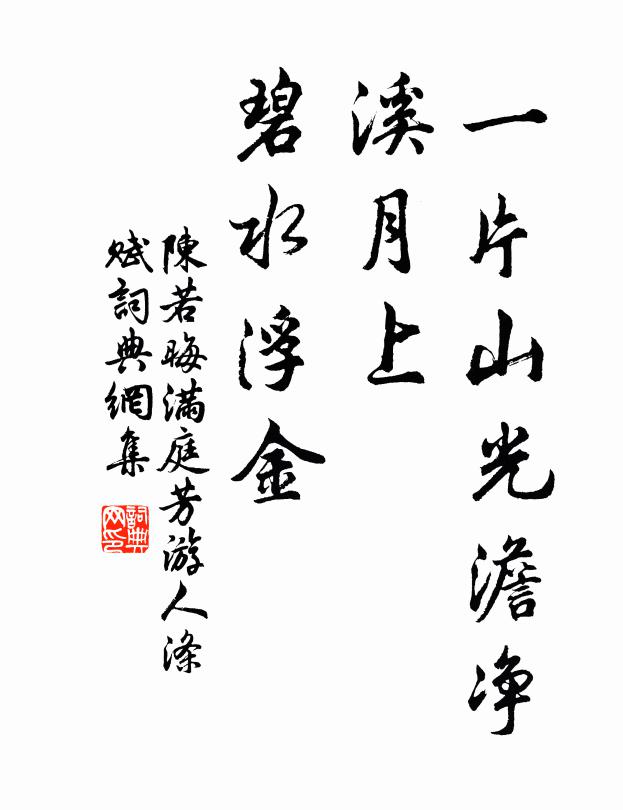 一片山光澹净
溪月上
碧水浮金
陳若晦满庭芳游人滌
赋詞典網集
詞典网印